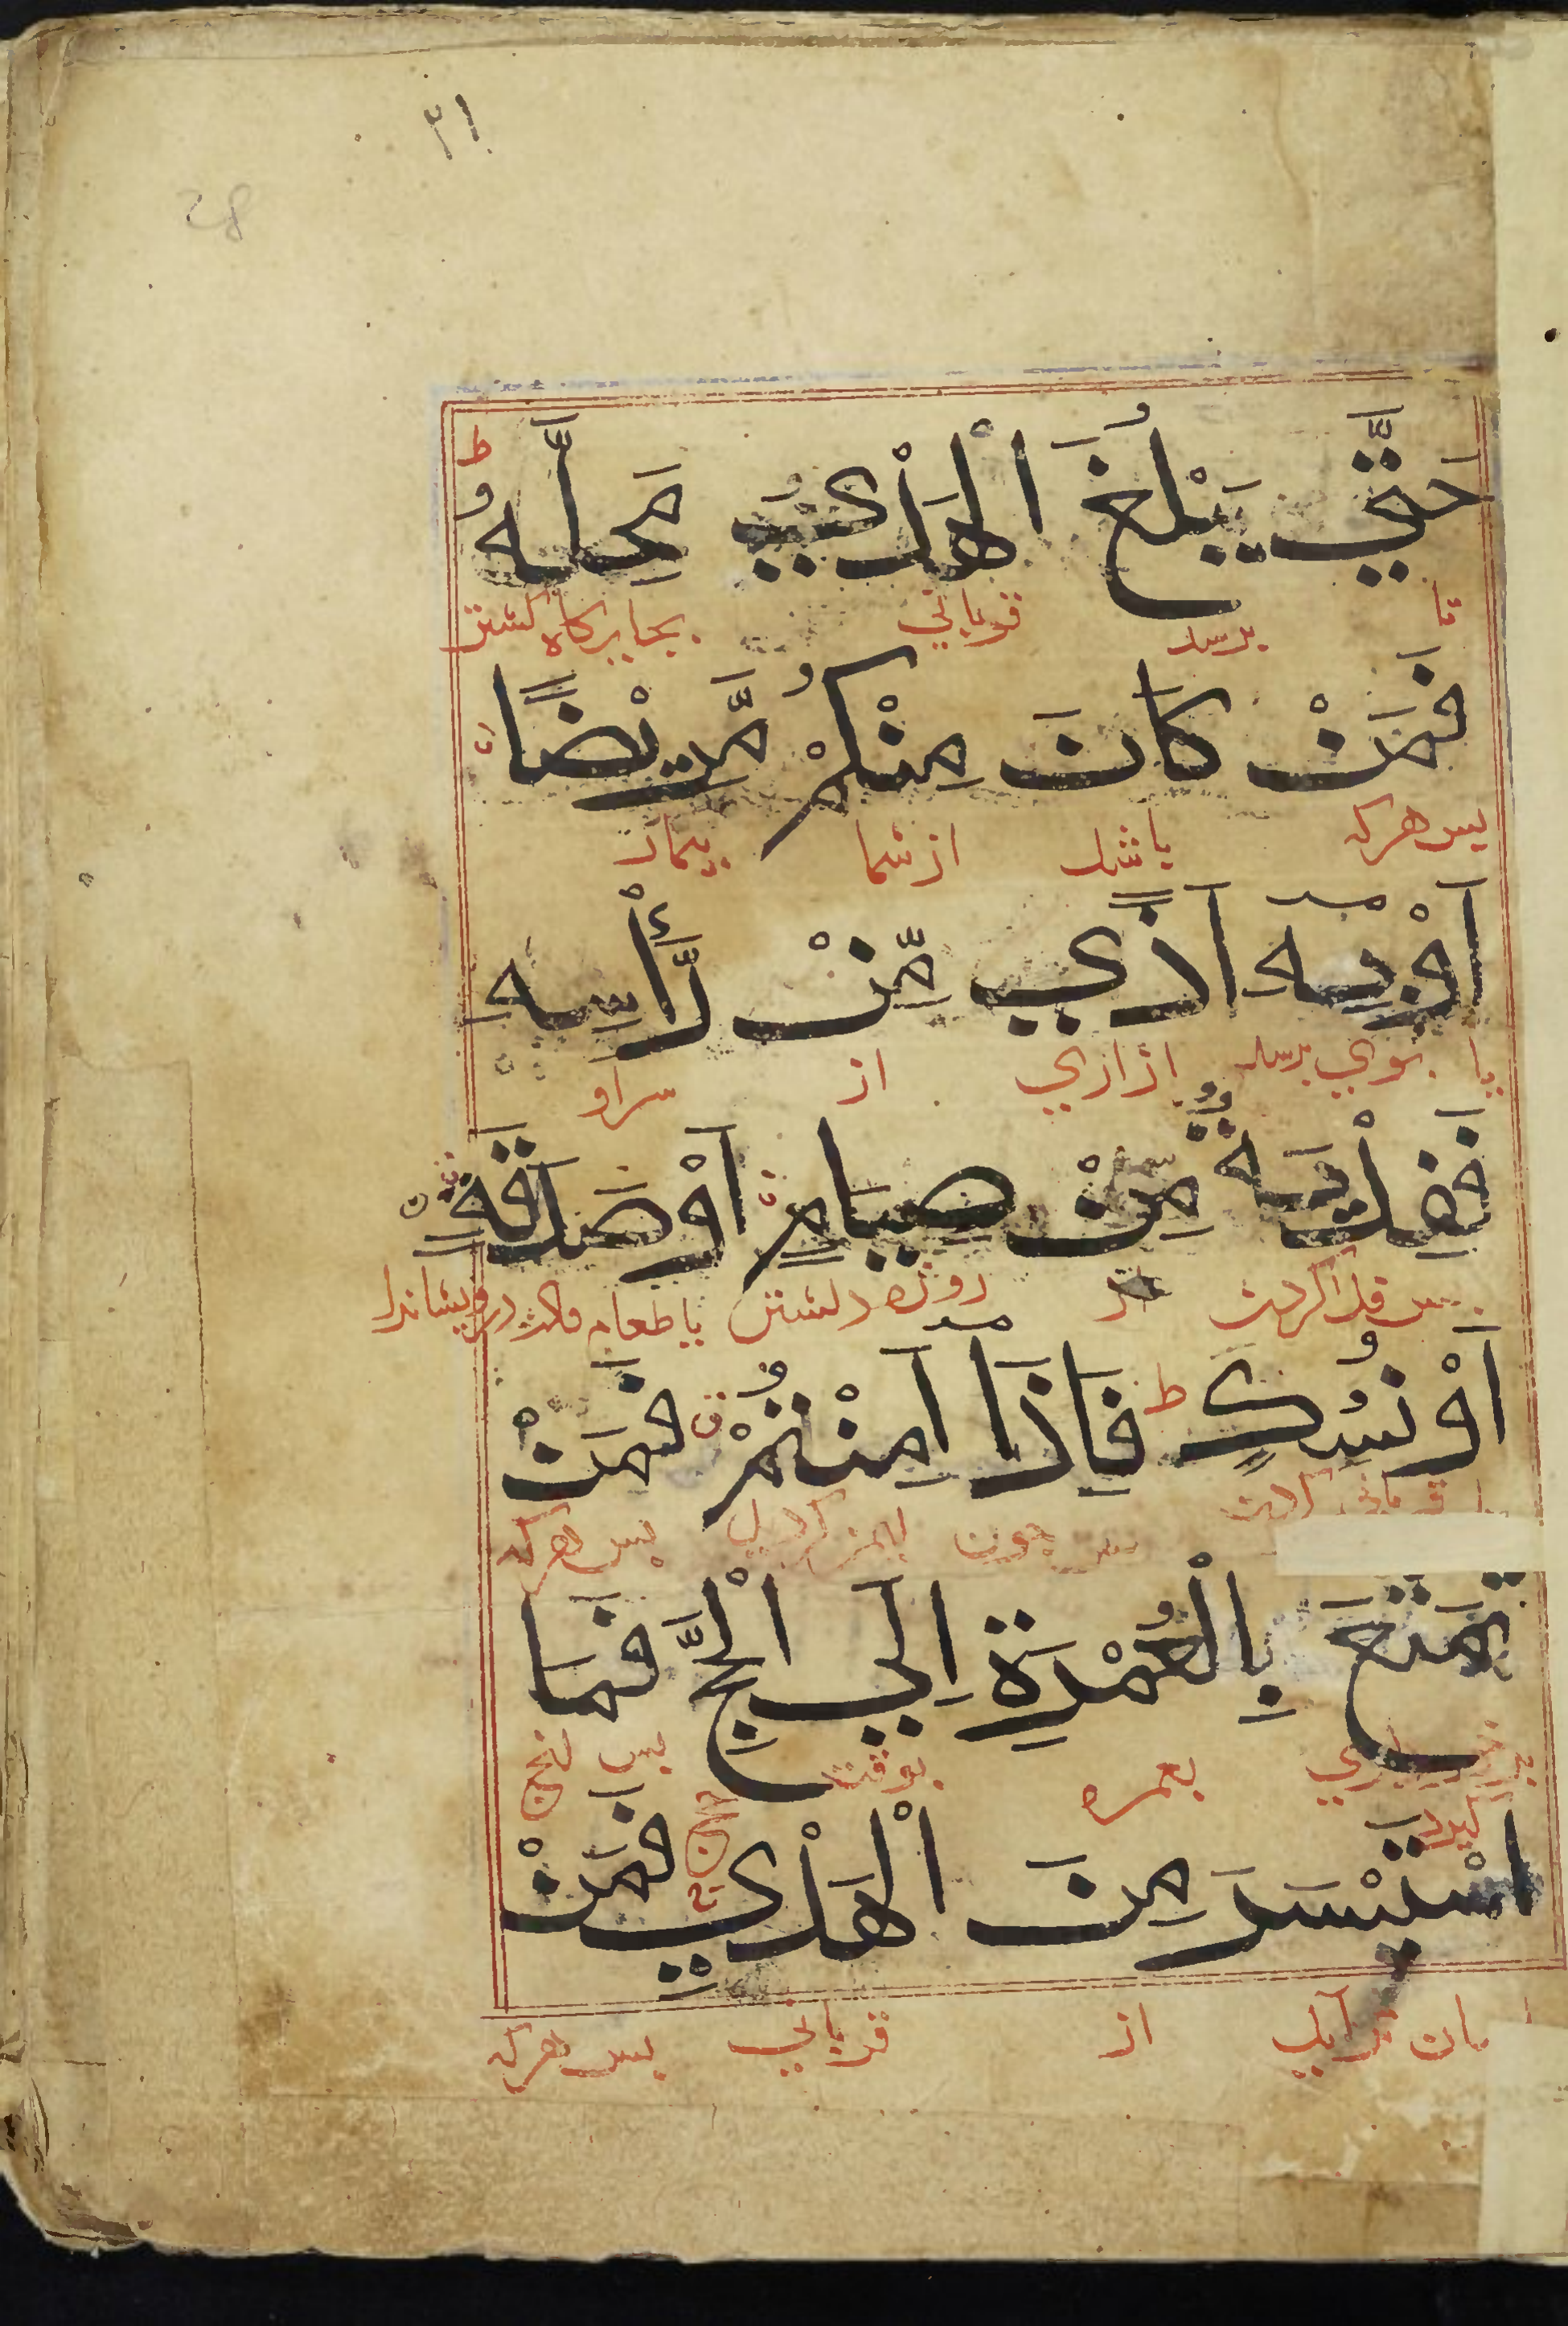 ٣١
28
حَتّٰي يَبْلُغَ الْهَدْيُ مَحِلَّهُ ط
تا برسد قرباني بجايركاه كشتن
فَمَنْ كَانَ مِنْكُمْ مَّرِيْضًا
پس هركه باشد از شما بيمار
اَوْ بِهٖ اَذًي مِّنْ رَّأْسِهٖ
يا بوي برسد ازاري از سر او
فَفِدْيَةٌ مِّنْ صِيَامٍ اَوْ صَدَقَةٍ
پس فدا كردن از روزه داشتن يا طعام درويشانرا
اَوْ نُسُكٍ ط فَاِذَا اَمِنْتُمْ فَمَنْ
يا قرباني كردن پس چون ايمن كرديد پس هركه
تَمَتَّعَ بِالْعُمْرَةِ اِلَي الْحَجِّ فَمَا
بعمره بوقت حج پس انچ
كيرد
اسْتَيْسَرَ مِنَ الْهَدْيِ فَمَنْ
اسان برآيد از قرباني پس هركه